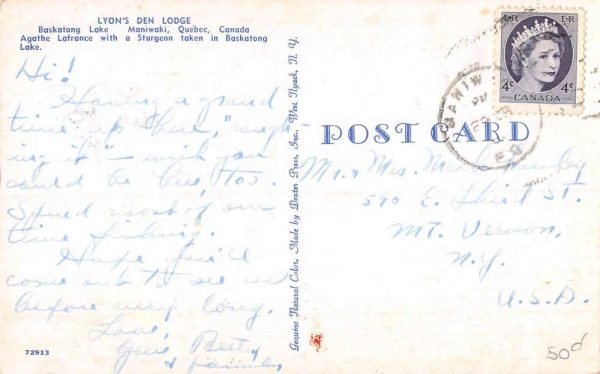 LYON'S DEN LODGE
Baskatong Lake Maniwaki, Quebec, Canada
Agathe Lafrance with a Sturgeon taken in Baskatong
Lake.
Hi!
Having a grand
time up here, "rough-
ing it" - wish you
could be here, too.
Spend most of our
time fishing.
Hope you'll
come out to see us
before very long.
Love,
Betty
& Family
72913
Genuine Natural Color. Made by Dexter Press, Inc., West Nyack, N. Y.
POST CARD
E R E R
4¢ 4¢
CANADA
MANIW
P.Q.
Mr. & Mrs. Mark
590 E. Third St.
Mt. Vernon,
N.Y.
U.S.A.
50¢